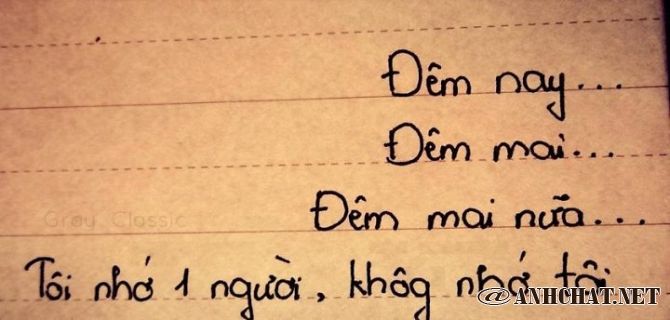 Đêm nay...
Đêm mai...
Đêm mai nữa...
Gray Classic
Tôi nhớ 1 người, khôg nhớ tôi
@ANHCHAT.NET